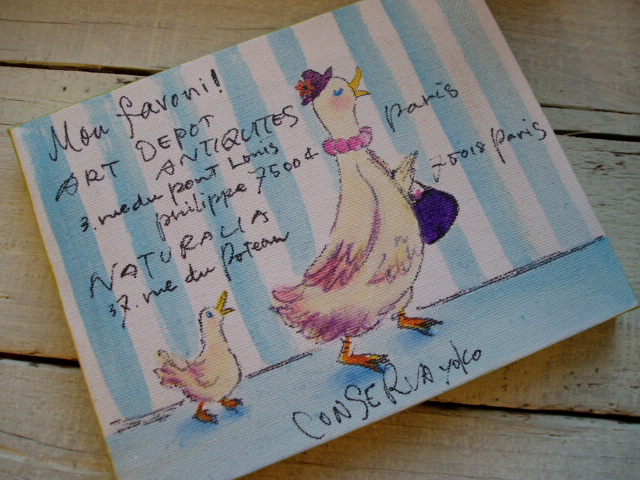 Mon favori!
ART DEPOT
ANTIQUITES
3. rue du pont Louis
philippe 75004 paris
NATURALIA
37. rue du Poteau 75018 paris
CONSERVA yoko